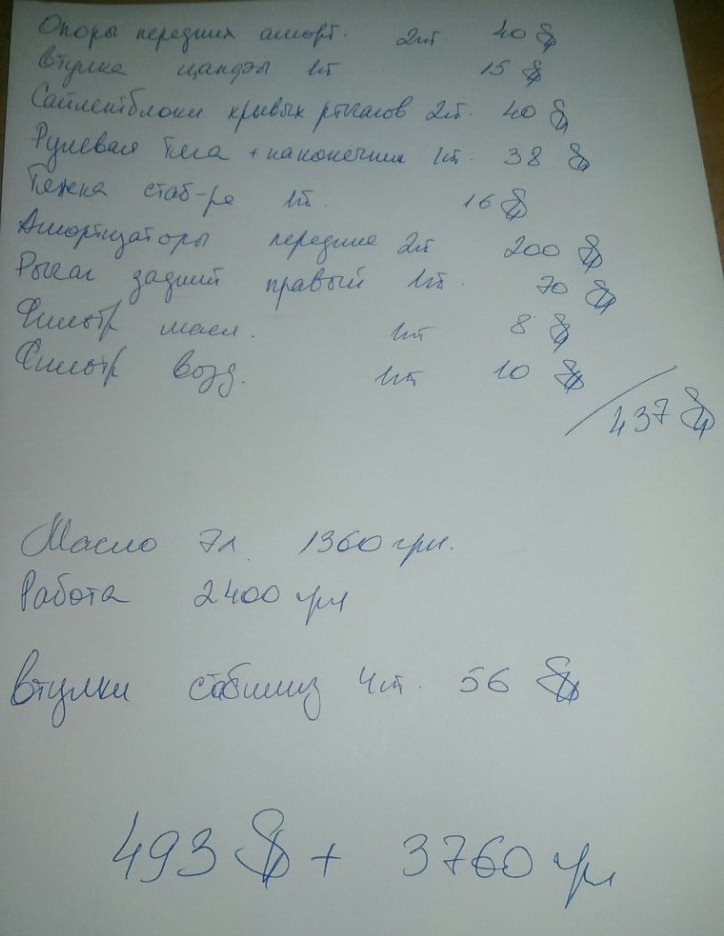 Опоры передних аморт. 2шт 40 $
Втулка цапфы 1шт 15 $
Сайлентблоки кривых рычагов 2шт. 40 $
Рулевая тяга + наконечник 1шт. 38 $
Тяжка стаб-ра 1шт. 16 $
Амортизаторы передние 2шт 200 $
Рычаг задний правый 1шт. 70 $
Фильтр масл. 1шт 8 $
Фильтр возд. 1шт 10 $
437 $
Масло 7л. 1360 грн.
Работа 2400 грн
Втулки стабилиз 4шт. 56 $
493 $ + 3760 грн